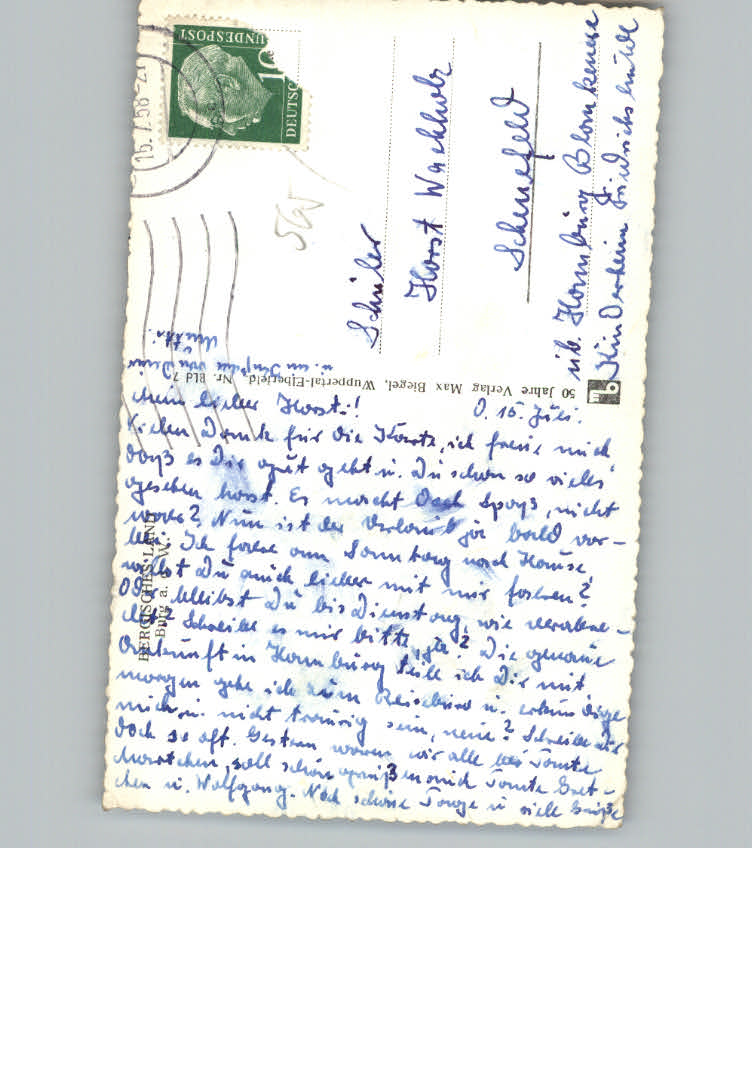 Mein lieber Horsti!
D. 15. Juli.
Vielen Dank für die Karte, ich freue mich
daß es Dir gut geht u. Du schon so vieles
gesehen hast. Es macht doch Spaß, nicht
wahr? Nun ist der Urlaub ja bald vor-
bei. Ich fahre am Sonntag nach Hause
willst Du auch lieber mit mir fahren?
Oder bleibst Du bis Dienstag, wie verabre-
det? Schreibe es mir bitte, ja? Die genaue
Ankunft in Hamburg teile ich Dir mit
morgen gehe ich zum Reisebüro u. erkundige
mich u. nicht traurig sein, neue? Schreibe mir
doch so oft. Gestern waren wir alle bei Tante
Martchen, soll schön grüßen auch Tante Gret-
chen u. Wolfgang. Noch schöne Tage u. viele Grüße
u. ein Küßchen von Deiner
Mutti.
Schüler
Horst Wachholz
Schenefeld
üb. Hamburg Blankenese
Kinderheim Friedrichshulde
50 Jahre Verlag Max Biegel, Wuppertal-Elberfeld, Nr. BLd 7
BERGISCHES LAND
Burg a. d. W.
DEUTSC
BUNDESPOST
10
15.7.58-21